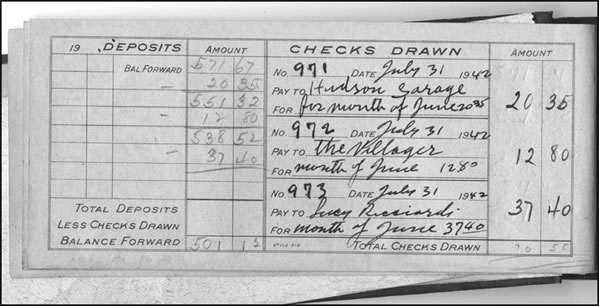 19 DEPOSITS AMOUNT
BAL FORWARD 571 67
— 20 35
551 32
— 12 80
538 52
— 37 40
TOTAL DEPOSITS
LESS CHECKS DRAWN
BALANCE FORWARD 501 12
CHECKS DRAWN AMOUNT
NO. 971 DATE July 31 1942
PAY TO Hudson Garage
FOR for month of June 20 35 20 35
NO. 972 DATE July 31 1942
PAY TO The Villager
FOR month of June 12 80 12 80
NO. 973 DATE July 31 1942
PAY TO Lucy Ricciardi
FOR month of June 37 40 37 40
TOTAL CHECKS DRAWN 70 55